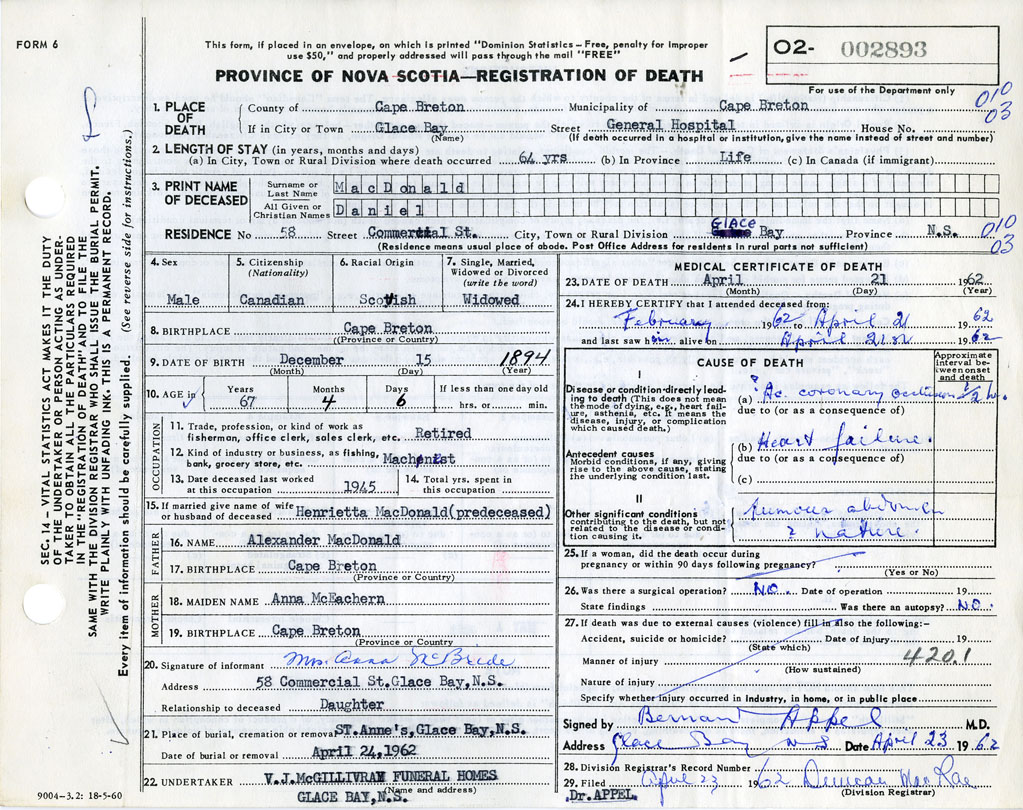 FORM 6
This form, if placed in an envelope, on which is printed "Dominion Statistics – Free, penalty for improper
use $50," and properly addressed will pass through the mail "FREE"
O2- 002893
For use of the Department only
PROVINCE OF NOVA SCOTIA—REGISTRATION OF DEATH
010
03
1. PLACE OF DEATH
County of Cape Breton Municipality of Cape Breton
If in City or Town Glace Bay (Name) Street General Hospital House No.
(If death occurred in a hospital or institution, give the name instead of street and number)
2. LENGTH OF STAY (in years, months and days)
(a) In City, Town or Rural Division where death occurred 64 yrs (b) In Province Life (c) In Canada (if immigrant)
3. PRINT NAME OF DECEASED
Surname or Last Name MacDonald
All Given or Christian Names Daniel
RESIDENCE No 58 Street Commercial St. City, Town or Rural Division GLACE Bay Province N.S.
010
03
(Residence means usual place of abode. Post Office Address for residents in rural parts not sufficient)
4. Sex
Male
5. Citizenship (Nationality)
Canadian
6. Racial Origin
Scottish
7. Single, Married, Widowed or Divorced (write the word)
Widowed
8. BIRTHPLACE Cape Breton
(Province or Country)
9. DATE OF BIRTH December 15 1894
(Month) (Day) (Year)
10. AGE in Years 67 Months 4 Days 6 If less than one day old hrs. or min.
OCCUPATION
11. Trade, profession, or kind of work as fisherman, office clerk, sales clerk, etc. Retired
12. Kind of industry or business, as fishing, bank, grocery store, etc. Machenist
13. Date deceased last worked at this occupation 1945
14. Total yrs. spent in this occupation
15. If married give name of wife or husband of deceased Henrietta MacDonald(predeceased)
FATHER
16. NAME Alexander MacDonald
17. BIRTHPLACE Cape Breton
(Province or Country)
MOTHER
18. MAIDEN NAME Anna McEachern
19. BIRTHPLACE Cape Breton
(Province or Country
20. Signature of informant Mrs. Anna McBride
Address 58 Commercial St.Glace Bay,N.S.
Relationship to deceased Daughter
21. Place of burial, cremation or removal ST.Anne's,Glace Bay,N.S.
Date of burial or removal April 24,1962
22. UNDERTAKER V.J.McGILLIVRAY FUNERAL HOMES
(Name and address)
GLACE BAY,N.S.
9004-3.2: 18-5-60
MEDICAL CERTIFICATE OF DEATH
23. DATE OF DEATH April 21 1962
(Month) (Day) (Year)
24. I HEREBY CERTIFY that I attended deceased from:
February 1962 to April 21 1962
and last saw him alive on April 21st 1962
CAUSE OF DEATH
Approximate interval between onset and death
I
Disease or condition directly leading to death (This does not mean the mode of dying, e.g., heart failure, asthenia, etc. It means the disease, injury, or complication which caused death.)
(a) ? Ac. coronary occlusion 1/2 hr.
due to (or as a consequence of)
Antecedent causes
Morbid conditions, if any, giving rise to the above cause, stating the underlying condition last.
(b) Heart failure.
due to (or as a consequence of)
(c)
II
Other significant conditions contributing to the death, but not related to the disease or condition causing it.
abdomen
? nature.
25. If a woman, did the death occur during pregnancy or within 90 days following pregnancy?
(Yes or No)
26. Was there a surgical operation? NO. Date of operation 19
State findings Was there an autopsy? NO.
27. If death was due to external causes (violence) fill in also the following:–
Accident, suicide or homicide? Date of injury 19
(State which)
Manner of injury 420.1
(How sustained)
Nature of injury
Specify whether injury occurred in industry, in home, or in public place
Signed by Bernard Appel M.D.
Address Glace Bay NS Date April 23 1962
28. Division Registrar's Record Number
29. Filed April 23 1962 Duncan MacRae
Dr.APPEL. (Division Registrar)
SEC. 14 – VITAL STATISTICS ACT MAKES IT THE DUTY
OF THE UNDERTAKER OR PERSON ACTING AS UNDER-
TAKER TO OBTAIN ALL THE PARTICULARS REQUIRED
IN THE "REGISTRATION OF DEATH" AND TO FILE THE
SAME WITH THE DIVISION REGISTRAR WHO SHALL ISSUE THE BURIAL PERMIT.
WRITE PLAINLY WITH UNFADING INK. THIS IS A PERMANENT RECORD.
Every item of information should be carefully supplied. (See reverse side for instructions.)